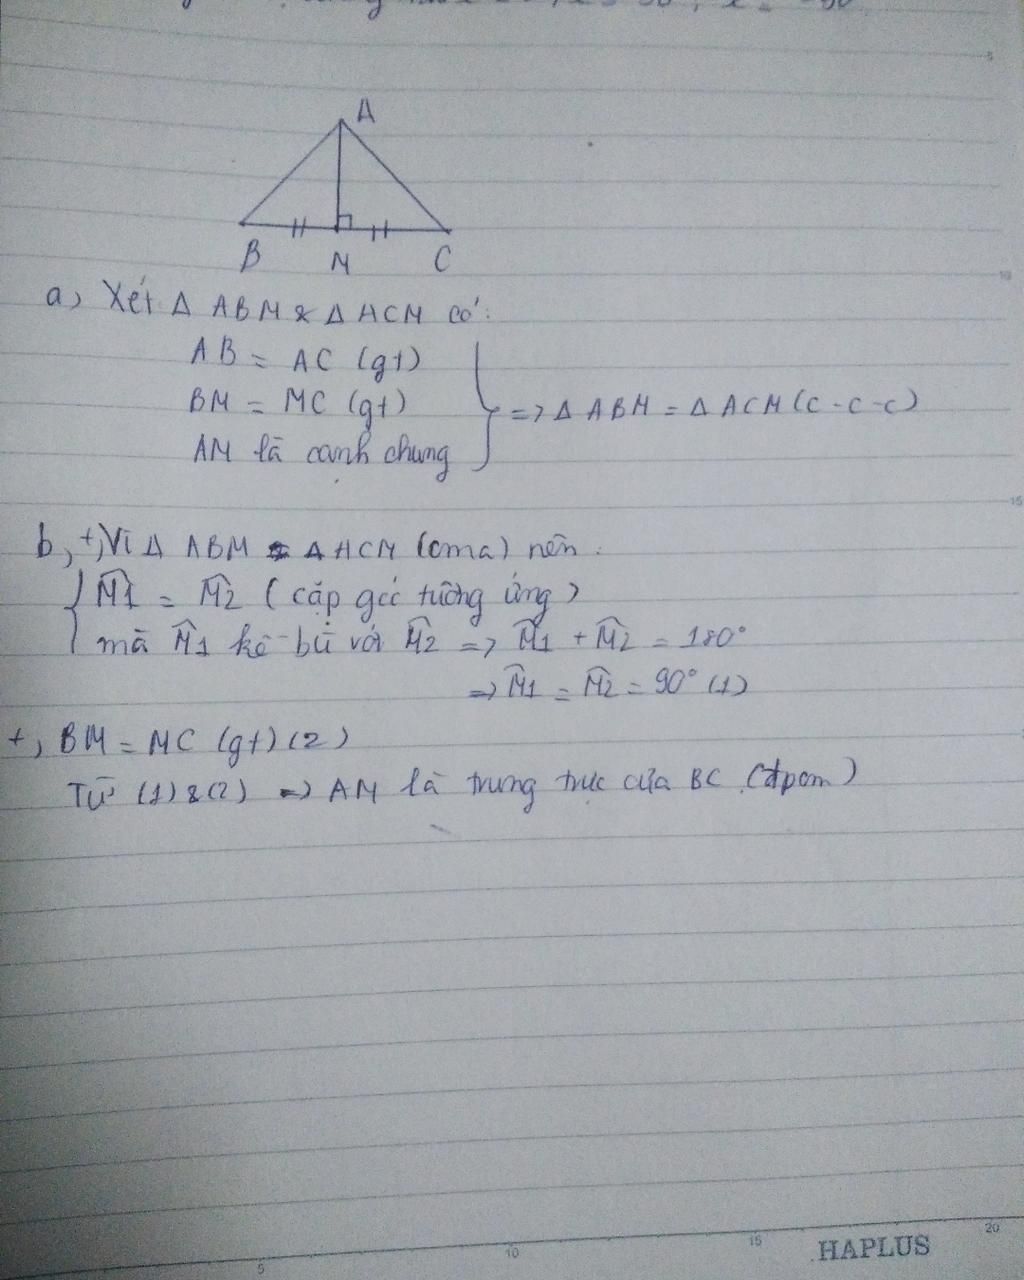 A
B M C
a, Xét Δ ABM & Δ ACM có:
AB = AC (gt)
BM = MC (gt)
AM là cạnh chung
=> Δ ABM = Δ ACM (c-c-c)
b, +, Vì Δ ABM = Δ ACM (cma) nên:
M̂1 = M̂2 (cặp góc tương ứng)
mà M̂1 kề bù với M̂2 => M̂1 + M̂2 = 180°
=> M̂1 = M̂2 = 90° (1)
+, BM = MC (gt) (2)
Từ (1) & (2) => AM là trung trực của BC (đpcm)
5
10
15
5 10 15 20
HAPLUS